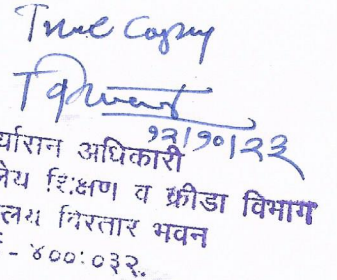 True Copy
१२/१०/२३
र्यासन अधिकारी
शिक्षण व क्रीडा विभाग
विस्तार भवन
- ४००:०३२.